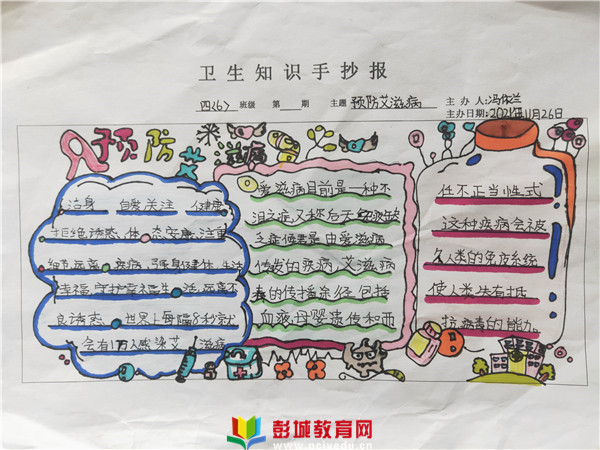 卫生知识手抄报
四〈6〉 班级 第 期 主题 预防艾滋病 主办人:冯依兰
主办日期:2021年11月26日
预防艾滋病
洁身 自爱关注 健康
拒绝诱惑 体 态安康 注重
细节 远离 疾病 强身健体 生活
幸福 守护 卫生 活 远离不
良诱惑 世界上每隔8秒就
会有1万人感染艾 滋病
爱滋病目前是一种不
治之症,又称后天
乏症候
体发的疾病,艾滋病
毒的传播途径包括
血液,母婴遗传和两
任不正当性式
这种疾病会被
人类的免疫系统
使人类失有抵
抗病毒的能力。
彭城教育网
www.pcjyedu.cn